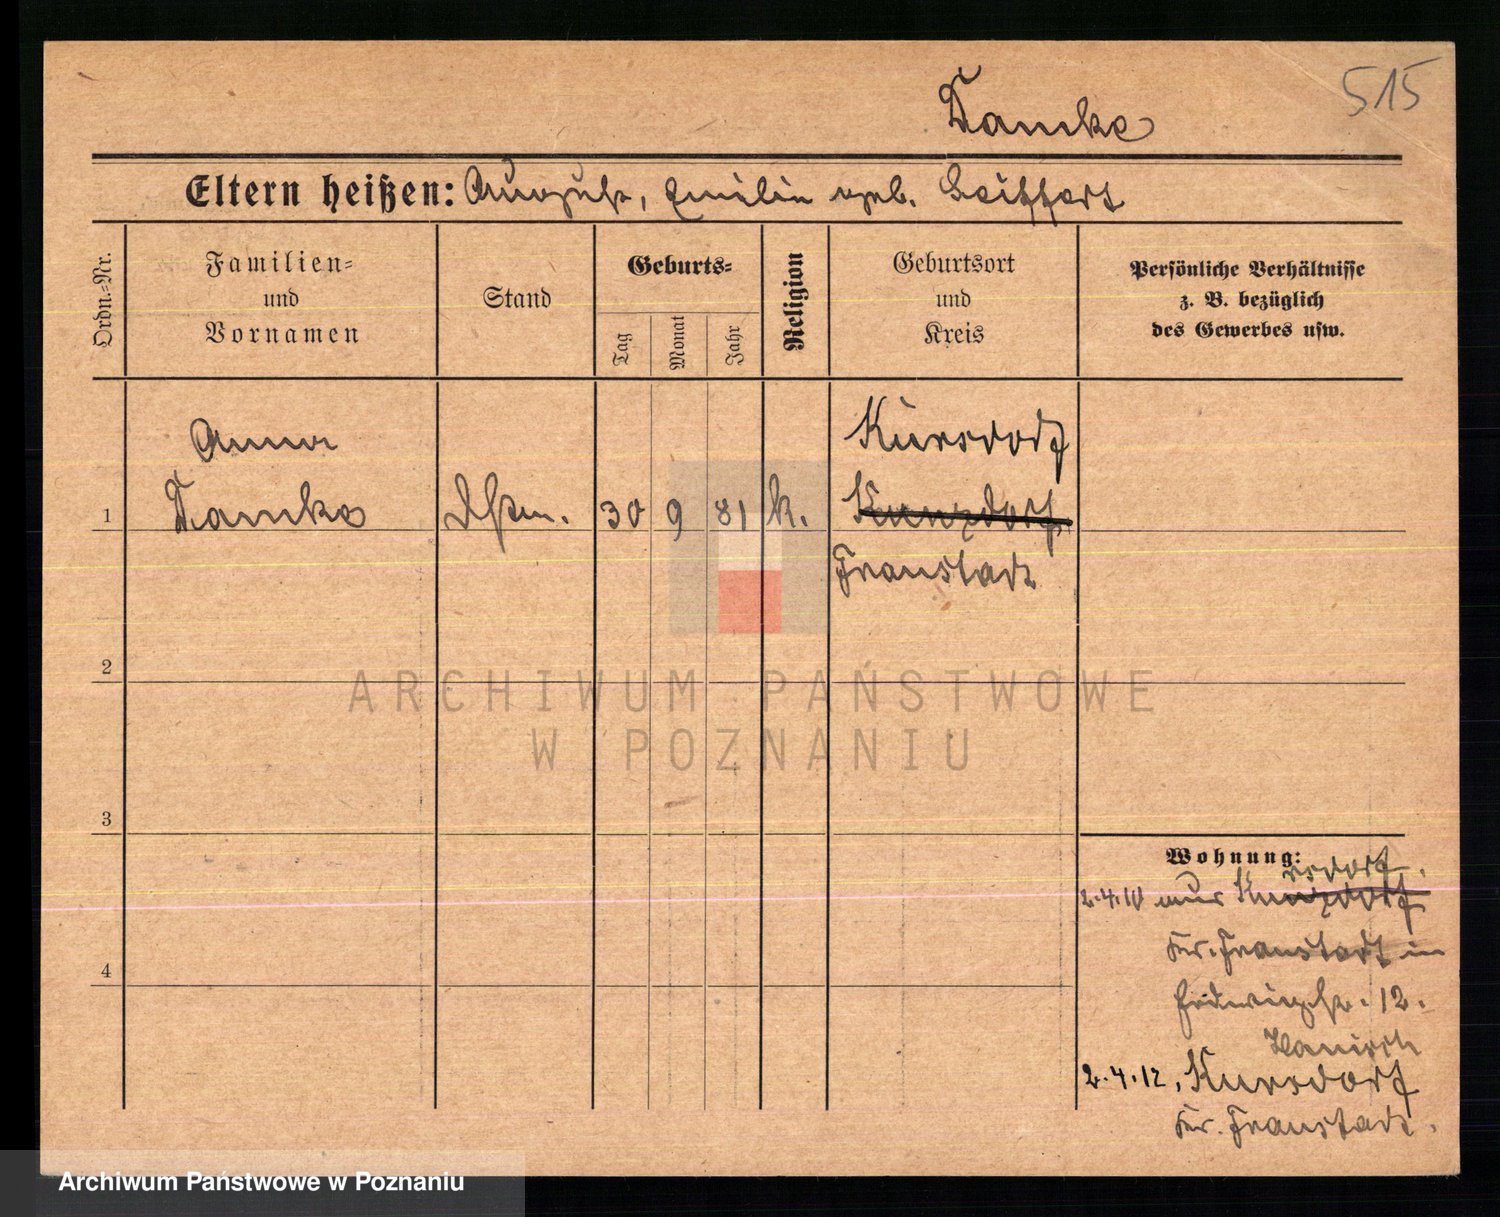 515
Damke
Eltern heißen: August, Emilie geb. Seiffert
Ordn.-Nr.
Familien-
und
Vornamen
Stand
Geburts-
Tag
Monat
Jahr
Religion
Geburtsort
und
Kreis
Persönliche Verhältnisse
z. B. bezüglich
des Gewerbes usw.
Anna
Kursdorf
1 Damke 30 9 81 k. Kunzdorf
Fraustadt
2
3
4
Wohnung:
rsdorf.
2.4.10 aus Kunzdorf
Kr. Fraustadt in
Hedwigstr. 12.
Hanisch
2.4.12, Kursdorf
Kr. Fraustadt.
ARCHIWUM PAŃSTWOWE
W POZNANIU
Archiwum Państwowe w Poznaniu